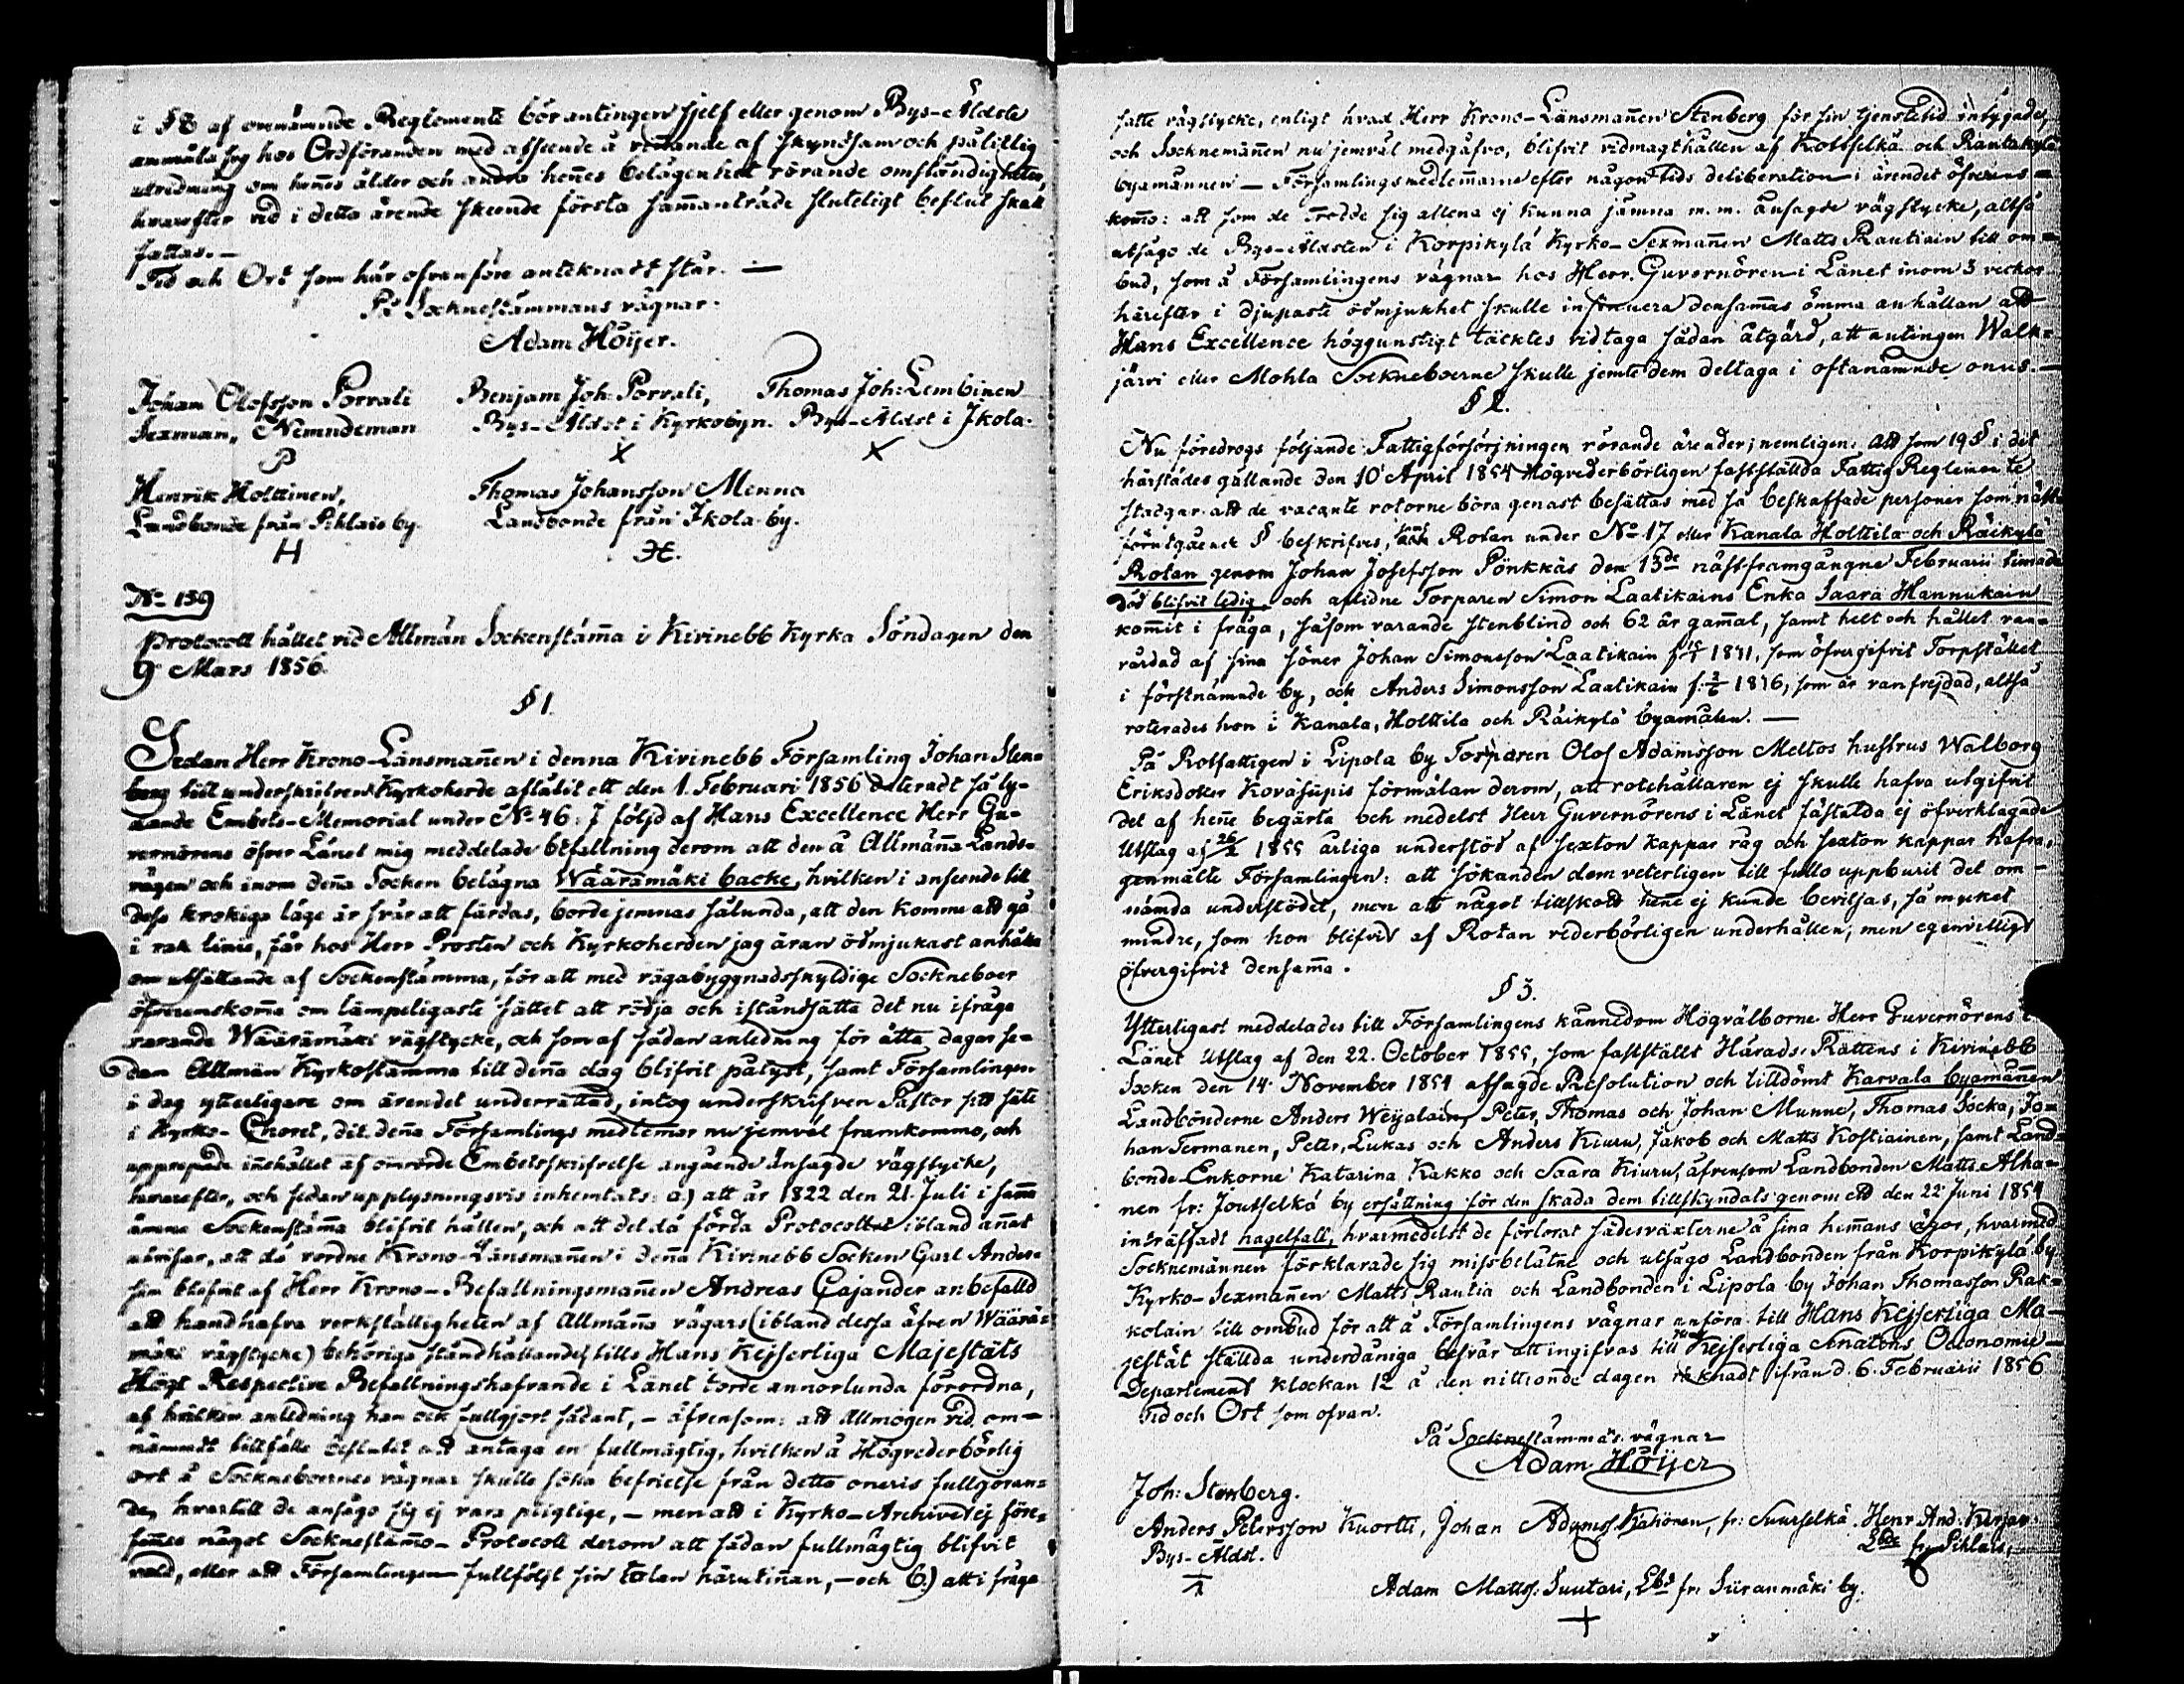 i § 8 af omnämnde Reglemente bör antingen sjelf eller genom Bys-Äldste
anmäla sig hos Ordföranden med afseende å vinnande af skyndsam och pålitlig
utredning om hennes ålder och andra hennes belägenhet rörande omständigheter,
hvarefter vid i detta ärende skeende första sammanträde sluteligt beslut skall
fattas.—
Tid och Ort som här ofvanföre antecknadt står. —
På Socknestämmans vägnar:
Adam Höijer.
Johan Olofsson Porrali Benjam Joh: Porrali, Thomas Joh: Lembinen
Sexman, Nemndeman Bys-Äldst i Kyrkobyn. Bys-Äldst i Ikola.
P X X
Henrik Holttinen, Thomas Johansson Menna
Landbonde från Pihlais by. Landbonde från Ikola by.
H
№ 139
Protocoll hållet vid Allmän Sockenstäm̄a i Kivinebb Kyrka Söndagen den
9 Mars 1856.
§ 1.
Sedan Herr Krono-Länsman̄en i denna Kivinebb Församling Johan Sten-
berg till underskrifven Kyrkoherde aflåtit ett den 1. Februari 1856 dateradt så ly-
dande Embets-Memorial under № 46: I följd af Hans Excellence Herr Gu-
vernörens öfver Länet mig meddelade befallning derom att den å Allmän̄a Lands-
vägen och inom den̄a Socken belägna Wääramäki backe, hvilken i anseende till
dess krokiga läge är svår att färdas, borde jemnas sålunda, att den komme att gå
i rak linie, får hos Herr Prosten och Kyrkoherden jag äran ödmjukast anhålla
om utsättande af Sockenstämma, för att med vägabyggnadsskyldige Sockneboer
öfverenskom̄a om lämpeligaste sättet att rödja och iståndsätta det nu ifråga
varande Wääramäki vägstycke, och som af sådan anledning för åtta dagar se-
dan Allmän Kyrkostämma till den̄a dag blifvit pålyst, samt Församlingen
i dag ytterligare om ärendet underrättad, intog underskrifven Pastor sitt säte
i Kyrko-Choret, dit den̄a Församlings medlemar nu jemväl framkommo, och
upprepade in̄ehållet af omrörde Embetsskrifvelse angående änsagde vägstycke,
hvarefter, och sedan upplysningsvis inhemtats: a.) att år 1822 den 21. Juli i sam̄a
ämne Sockenstäm̄a blifvit hållen, och att det då förda Protocollet ibland an̄at
utvisar, att då vordne Krono-Länsman̄en i den̄a Kivinebb Socken Carl Anders-
son blifvit af Herr Krono-Befallningsman̄en Andreas Cajander anbefalld
att handhafva verkställigheten af Allmän̄a vägars (ibland dessa äfven Wäärä-
mäki vägstycke) behöriga ståndhållande, tills Hans Kejserliga Majestäts
Högt Respective Befallningshafvande i Länet torde annorlunda förordna,
af hvilken anledning han ock fullgjort sådant, — äfvensom: att Allmogen vid om-
nämndt tillfälle beslutit att antaga en fullmägtig, hvilken å Högvederbörlig
ort å Sockneboernes vägnar skulle söka befrielse från detta oneris fullgöran-
de, hvartill de ansågo sig ej vara pligtige, — men att i Kyrko-Archivet ej före-
fin̄es något Socknestäm̄o-Protocoll derom att sådan fullmägtig blifvit
vald, eller att Församlingen fullföljt sin talan härutin̄an, — och b.) att i fråga
satte vägstycke, enligt hvad Herr Krono-Länsman̄en Stenberg för sin tjenstetid intygade,
och Socknemän̄en nu jemväl medgåfvo, blifvit vidmagthållen af Kottselkä och Rautakylä
byamännen — Församlingsmedlem̄arne efter någon tids deliberation i ärendet öfverens-
kom̄o: att som de trodde sig allena ej kunna jämna m. m. ansagde vägstycke, altså
utsågo de Bys-Äldsten i Korpikylä Kyrko-Sexman̄en Matts Rautiain till om-
bud, som å Församlingens vägnar hos Herr Guvernören i Länet inom 3 veckor
härefter i djupaste ödmjukhet skulle insinuera densam̄as ömma anhållan att
Hans Excellence höggunstigt täcktes vidtaga sådan åtgärd, att antingen Walk-
järvi eller Mohla Sockneboerne skulle jemte dem deltaga i oftanämnde onus.—
§ 2.
Nu föredrogs följande Fattigförsörjningen rörande ärender; nemligen: att som 19 § i det
härstädes gällande den 10 April 1854 Högvederbörligen fastställda Fattig Reglemente
stadgar att de vacante rotorne böra genast besättas med så beskaffade personer som näst
förutgående § beskrifves, som Rotan under № 17 eller Kanala Holttila och Räikylä
Rotan genom Johan Josefsson Pönkkäs den 13de nästframgångne Februarii timade
död blifvit ledig, och aflidne Torparen Simon Laatikains Enka Saara Hannukain
kom̄it i fråga, såsom varande stenblind och 62 år gam̄al, samt helt och hållet van-
vårdad af sina söner Johan Simonsson Laatikain f. 1831, som öfvergifvit Torpstället
i förstnämnde by, och Anders Simonsson Laatikain f. 1836, som är vanfrejdad, altså
roterades hon i Kanala, Holttila och Räikylä byamålen. —
På Rotfattigen i Lipola by Torparen Olof Adamsson Meltos hustrus Walborg
Eriksdoter Koväsiipis förmälan derom, att rotehållaren ej skulle hafva utgifvit
det af hen̄e begärta och medelst Herr Guvernörens i Länet fästalda ej öfverklagade
Utslag af 1855 årliga understöd af sexton kappar råg och sexton kappar hafra,
genmälte Församlingen: att sökanden dem veterligen till fullo uppburit det om-
nämda understödet, men att något tillskott hen̄e ej kunde beviljas, så mycket
mindre, som hon blifvit af Rotan vederbörligen underhållen, men egenvilligt
öfvergifvit densam̄a.
§ 3.
Ytterligast meddelades till Församlingens kännedom Högvälborne Herr Guvernörens i
Länet Utslag af den 22. October 1855, som fastställt Härads-Rättens i Kivinebb
Socken den 14. November 1854 afsagde Resolution och tilldömt Karvala byamännen
Landbönderne Anders Weijalain, Peter, Thomas och Johan Munne, Thomas Socka, Jo-
han Termanen, Peter, Lukas och Anders Kiuru, Jakob och Matts Kostiainen, samt Land-
bonde-Enkorne Katarina Kakko och Saara Kiuru, äfvensom Landbonden Matts Alha-
nen fr: Joutselkä by ersättning för den skada dem tillskyndats genom ett den 22 Juni 1854
inträffadt hagelfall, hvarmedelst de förlorat sädesväxterne å sina hem̄ans ägor, hvarmed
Socknemännen förklarade sig missbelåtne och utsågo Landbonden från Korpikylä by
Kyrko-Sexman̄en Matts Rautia och Landbonden i Lipola by Johan Thomasson Rak-
kolain till ombud för att å Församlingens vägnar anföra till Hans Kejserliga Ma-
jestät ställda underdåniga besvär att ingifvas till Kejserliga Senatens Oeconomie-
Departement klockan 12 å den nittionde dagen räknadt ifrån d. 6. Februarii 1856
Tid och Ort som ofvan.
På Socknestämmas vägnar
Adam Höijer
Joh: Stenberg.
Anders Petersson Kuortti, Johan Adamss. Kähönen, fr: Suurselkä. Henr. And:
Bys-Äldst. Lbde fr: Pihlais,
Adam Mattss: Suutari, Lbd fr: Siiranmäki by.